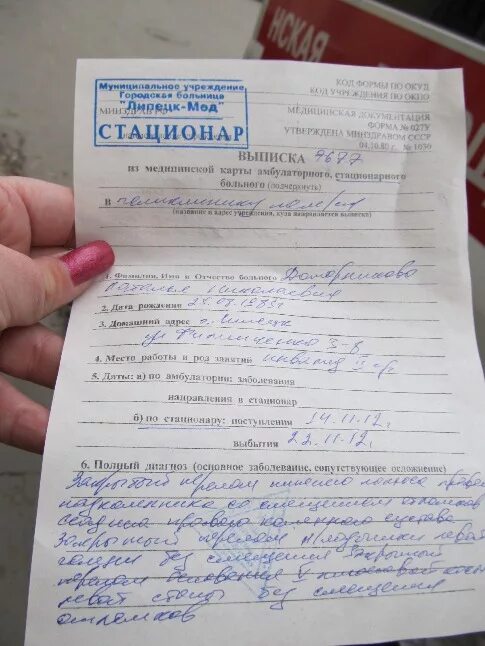 НСКАЯ
Муниципальное учреждение
Городская больница
"Липецк-Мед"
СТАЦИОНАР
МИНЗДРАВ РФ
КОД ФОРМЫ ПО ОКУД
КОД УЧРЕЖДЕНИЯ ПО ОКПО
МЕДИЦИНСКАЯ ДОКУМЕНТАЦИЯ
ФОРМА № 027У
УТВЕРЖДЕНА МИНЗДРАВОМ СССР
04.10.80 г. № 1030
ВЫПИСКА 7687
из медицинской карты амбулаторного, стационарного
больного (подчеркнуть)
В поликлинику
(название и адрес учреждения, куда направляется выписка)
1. Фамилия, Имя и Отчество больного
Наталья Николаевна
2. Дата рождения
3. Домашний адрес г. Липецк
ул 3-8
4. Место работы и род занятий инвалид II гр
5. Даты: а) по амбулатории: заболевания
направления в стационар
б) по стационару: поступления 14.11.12.
выбытия 22.11.12.
6. Полный диагноз (основное заболевание, сопутствующее осложнение)
Закрытый перелом нижнего полюса правого
надколенника со смещением отломков
правого коленного сустава
Закрытый перелом лодыжки левой
голени без смещения Закрытый
перелом основания V плюсневой кости
левой стопы без смещения
отломков